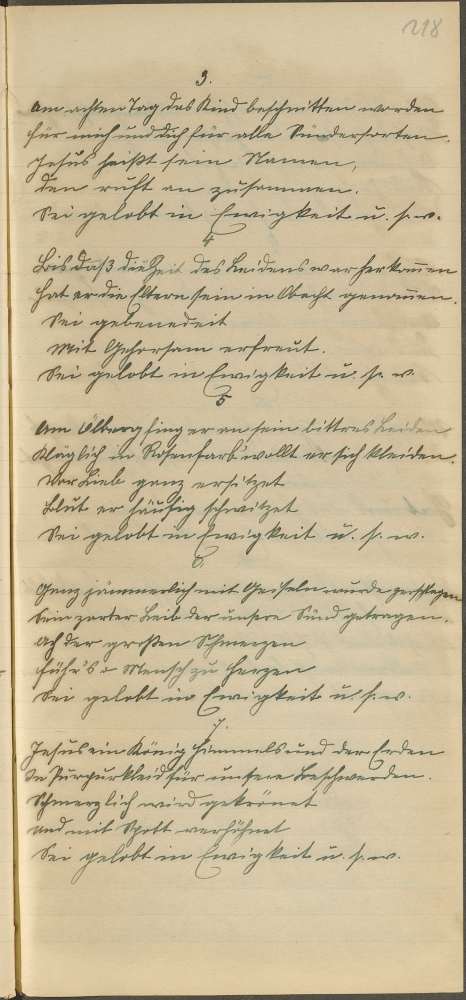 218
3.
Am achten Tag das Kind beschnitten worden
für mich und dich für alle Sündersorten.
Jesus heißt sein Namen,
den ruft an zusammen.
Sei gelobt in Ewigkeit u. s. w.
4
Bis daß die Zeit des Leidens war herkom̅en
hat er die Eltern sein in Obacht genom̅en.
Sei gebenedeit
mit Gehorsam erfreut.
Sei gelobt in Ewigkeit u. s. w.
5
Am Ölberg fing er an sein bittres Leiden
Kläglich in Rosenfarb' wollt er sich kleiden.
Vor Lieb ganz erhitzet
Blut er häufig schwitzet
Sei gelobt in Ewigkeit u. s. w.
6.
Ganz jämmerlich mit Geiseln wurde zerschlagen
Sein zarter Leib der unsere Sünd getragen.
Ach der großen Schmerzen
führ's o Mensch zu Herzen
Sei gelobt in Ewigkeit u. s. w.
7.
Jesus ein König Himmels und der Erden
In Purpurkleid für unsere Beschwerden.
Schmerzlich wird gekrönet
und mit Spott verhöhnet
Sei gelobt in Ewigkeit u. s. w.